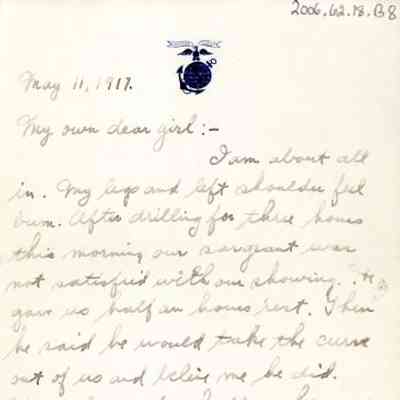 2006.62.18.B8
May 11, 1917.
My own dear girl:-
I am about all
in. My legs and left shoulder feel
bum. After drilling for three hours
this morning our sargeant was
not satisfied with our showing. He
gave us half an hours rest. Then
he said he would take the curve
out of us and blive me he did.